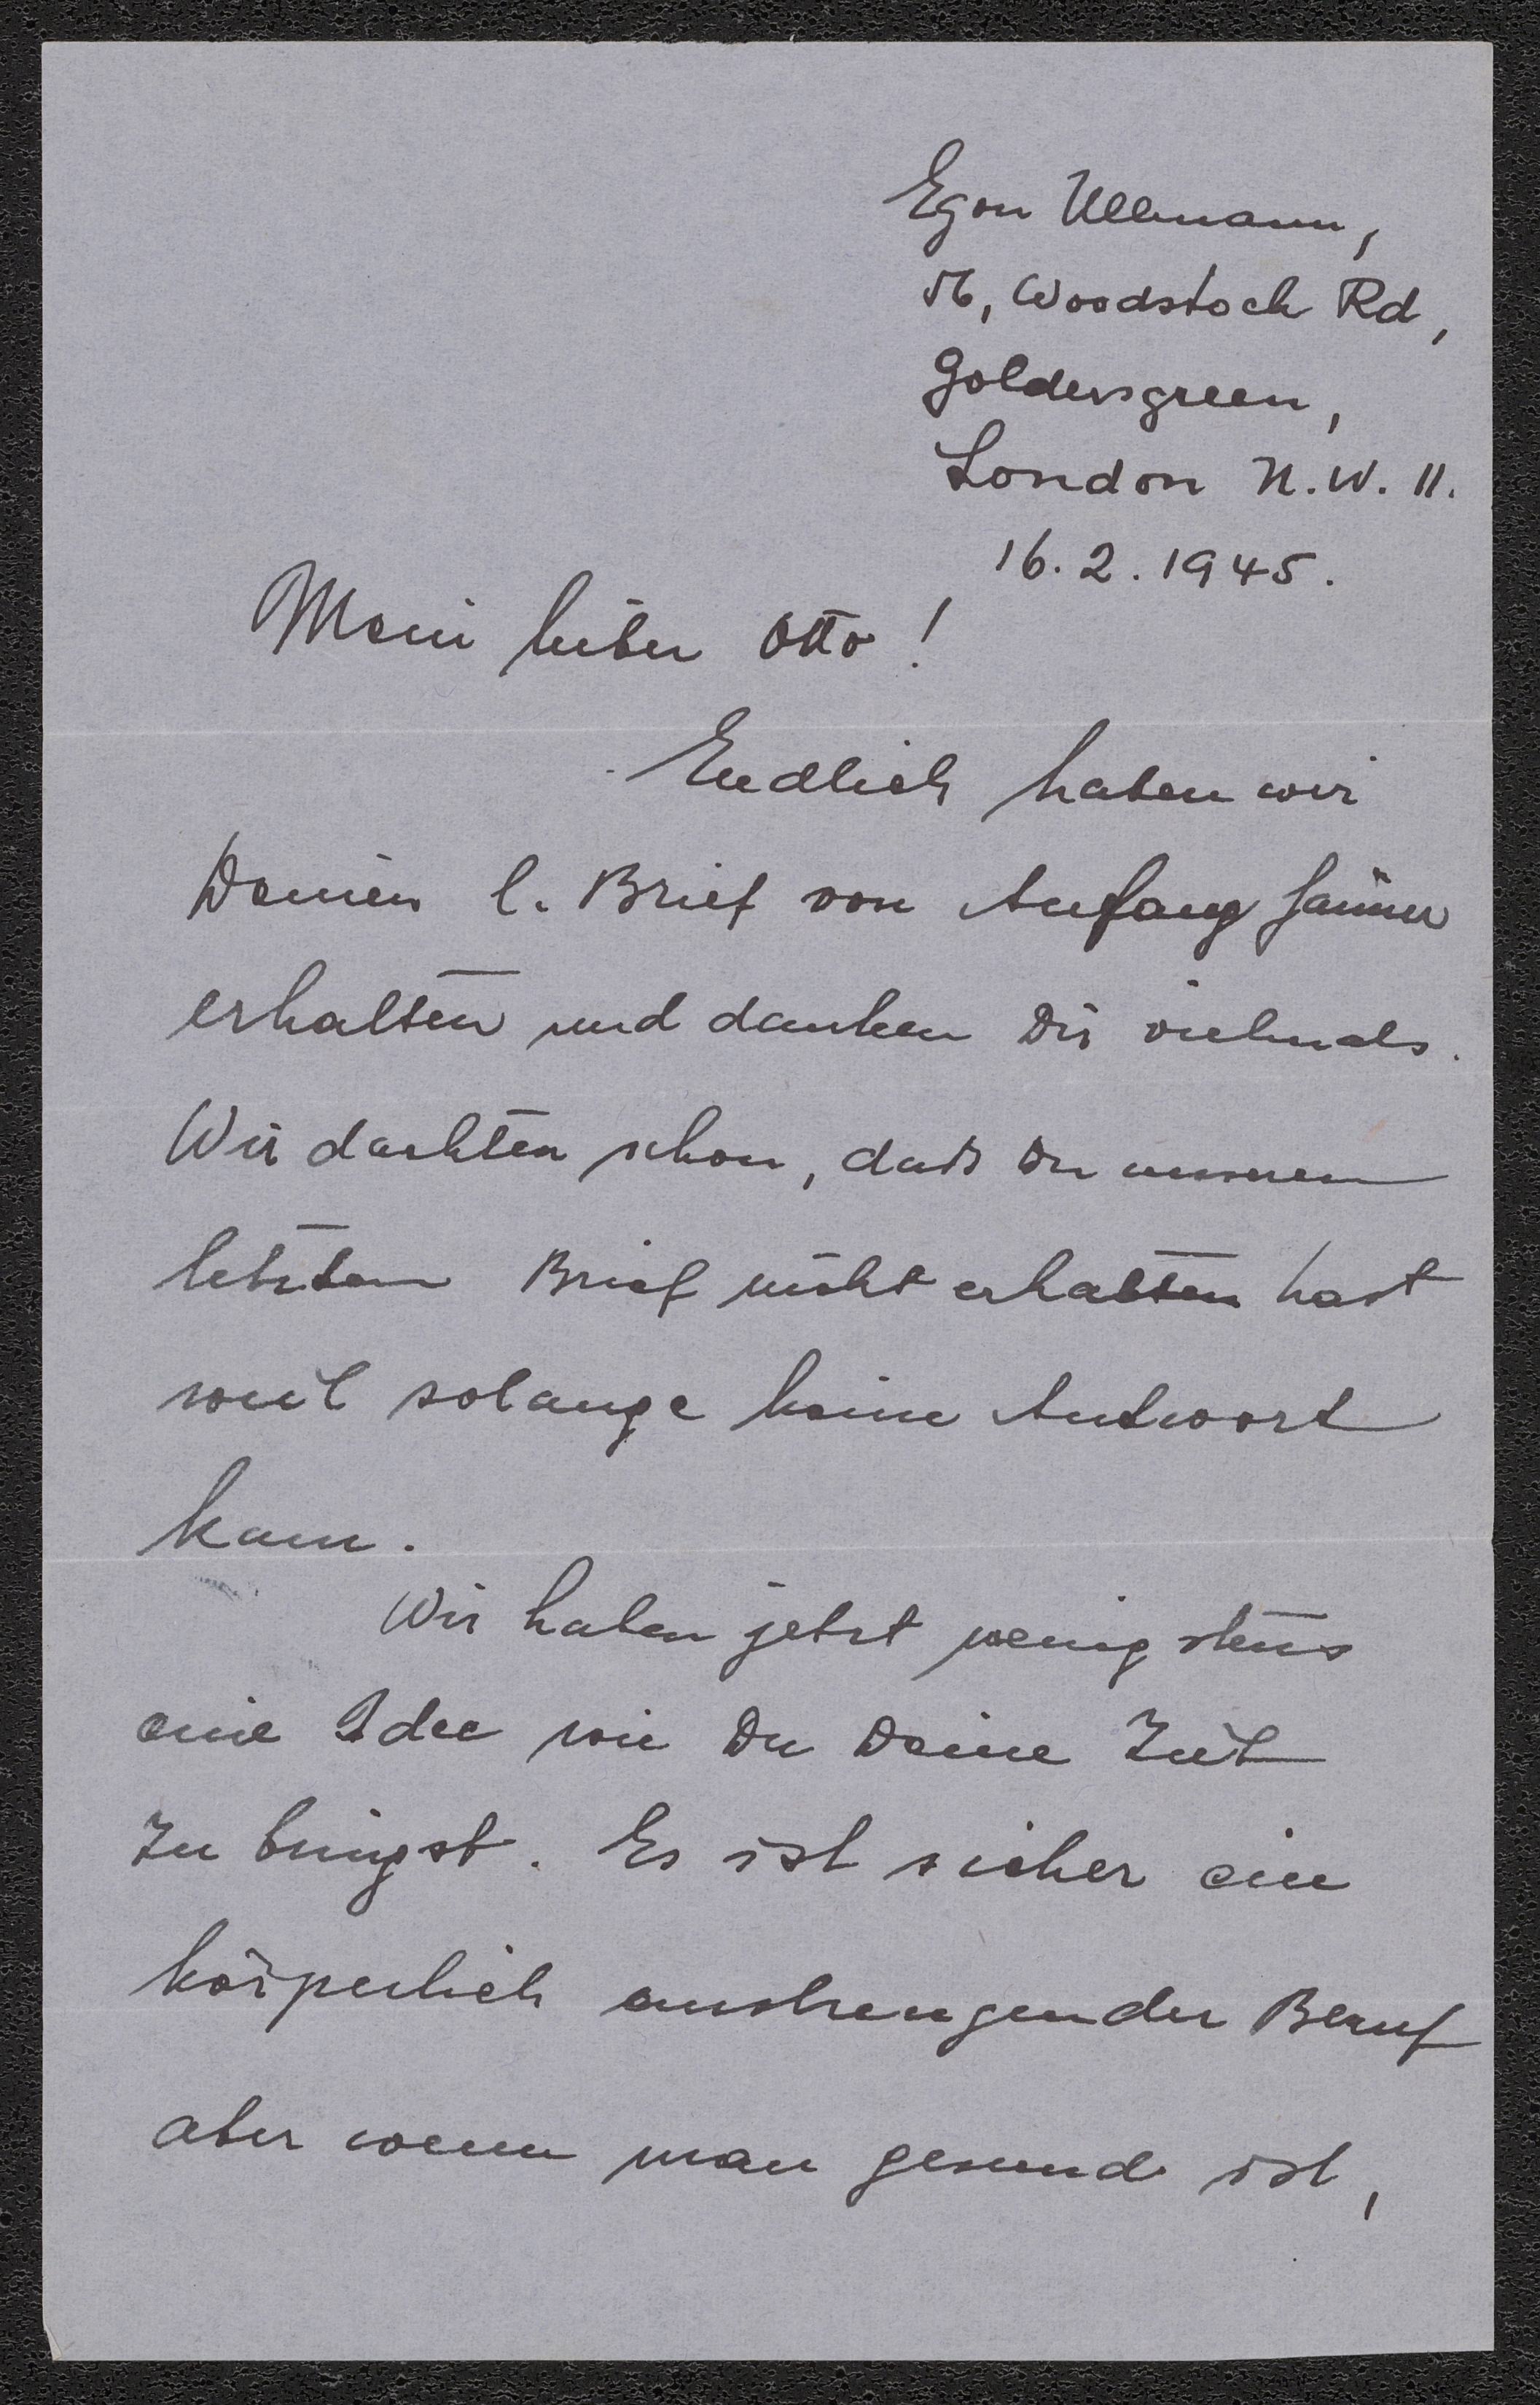 Egon Ullmann,
56, Woodstock Rd,
Goldersgreen,
London N.W. 11.
16.2.1945.
Mein lieber Otto!
Endlich haben wir
Deinen l. Brief von Anfang Jänner
erhalten und danken Dir vielmals.
Wir dachten schon, daß Du unseren
letzten Brief nicht erhalten hast
weil solange keine Antwort
kam.
Wir haben jetzt wenigstens
eine Idee wie Du Deine Zeit
zu bringst. Es ist sicher ein
körperlich anstrengender Beruf
aber wenn man gesund ist,